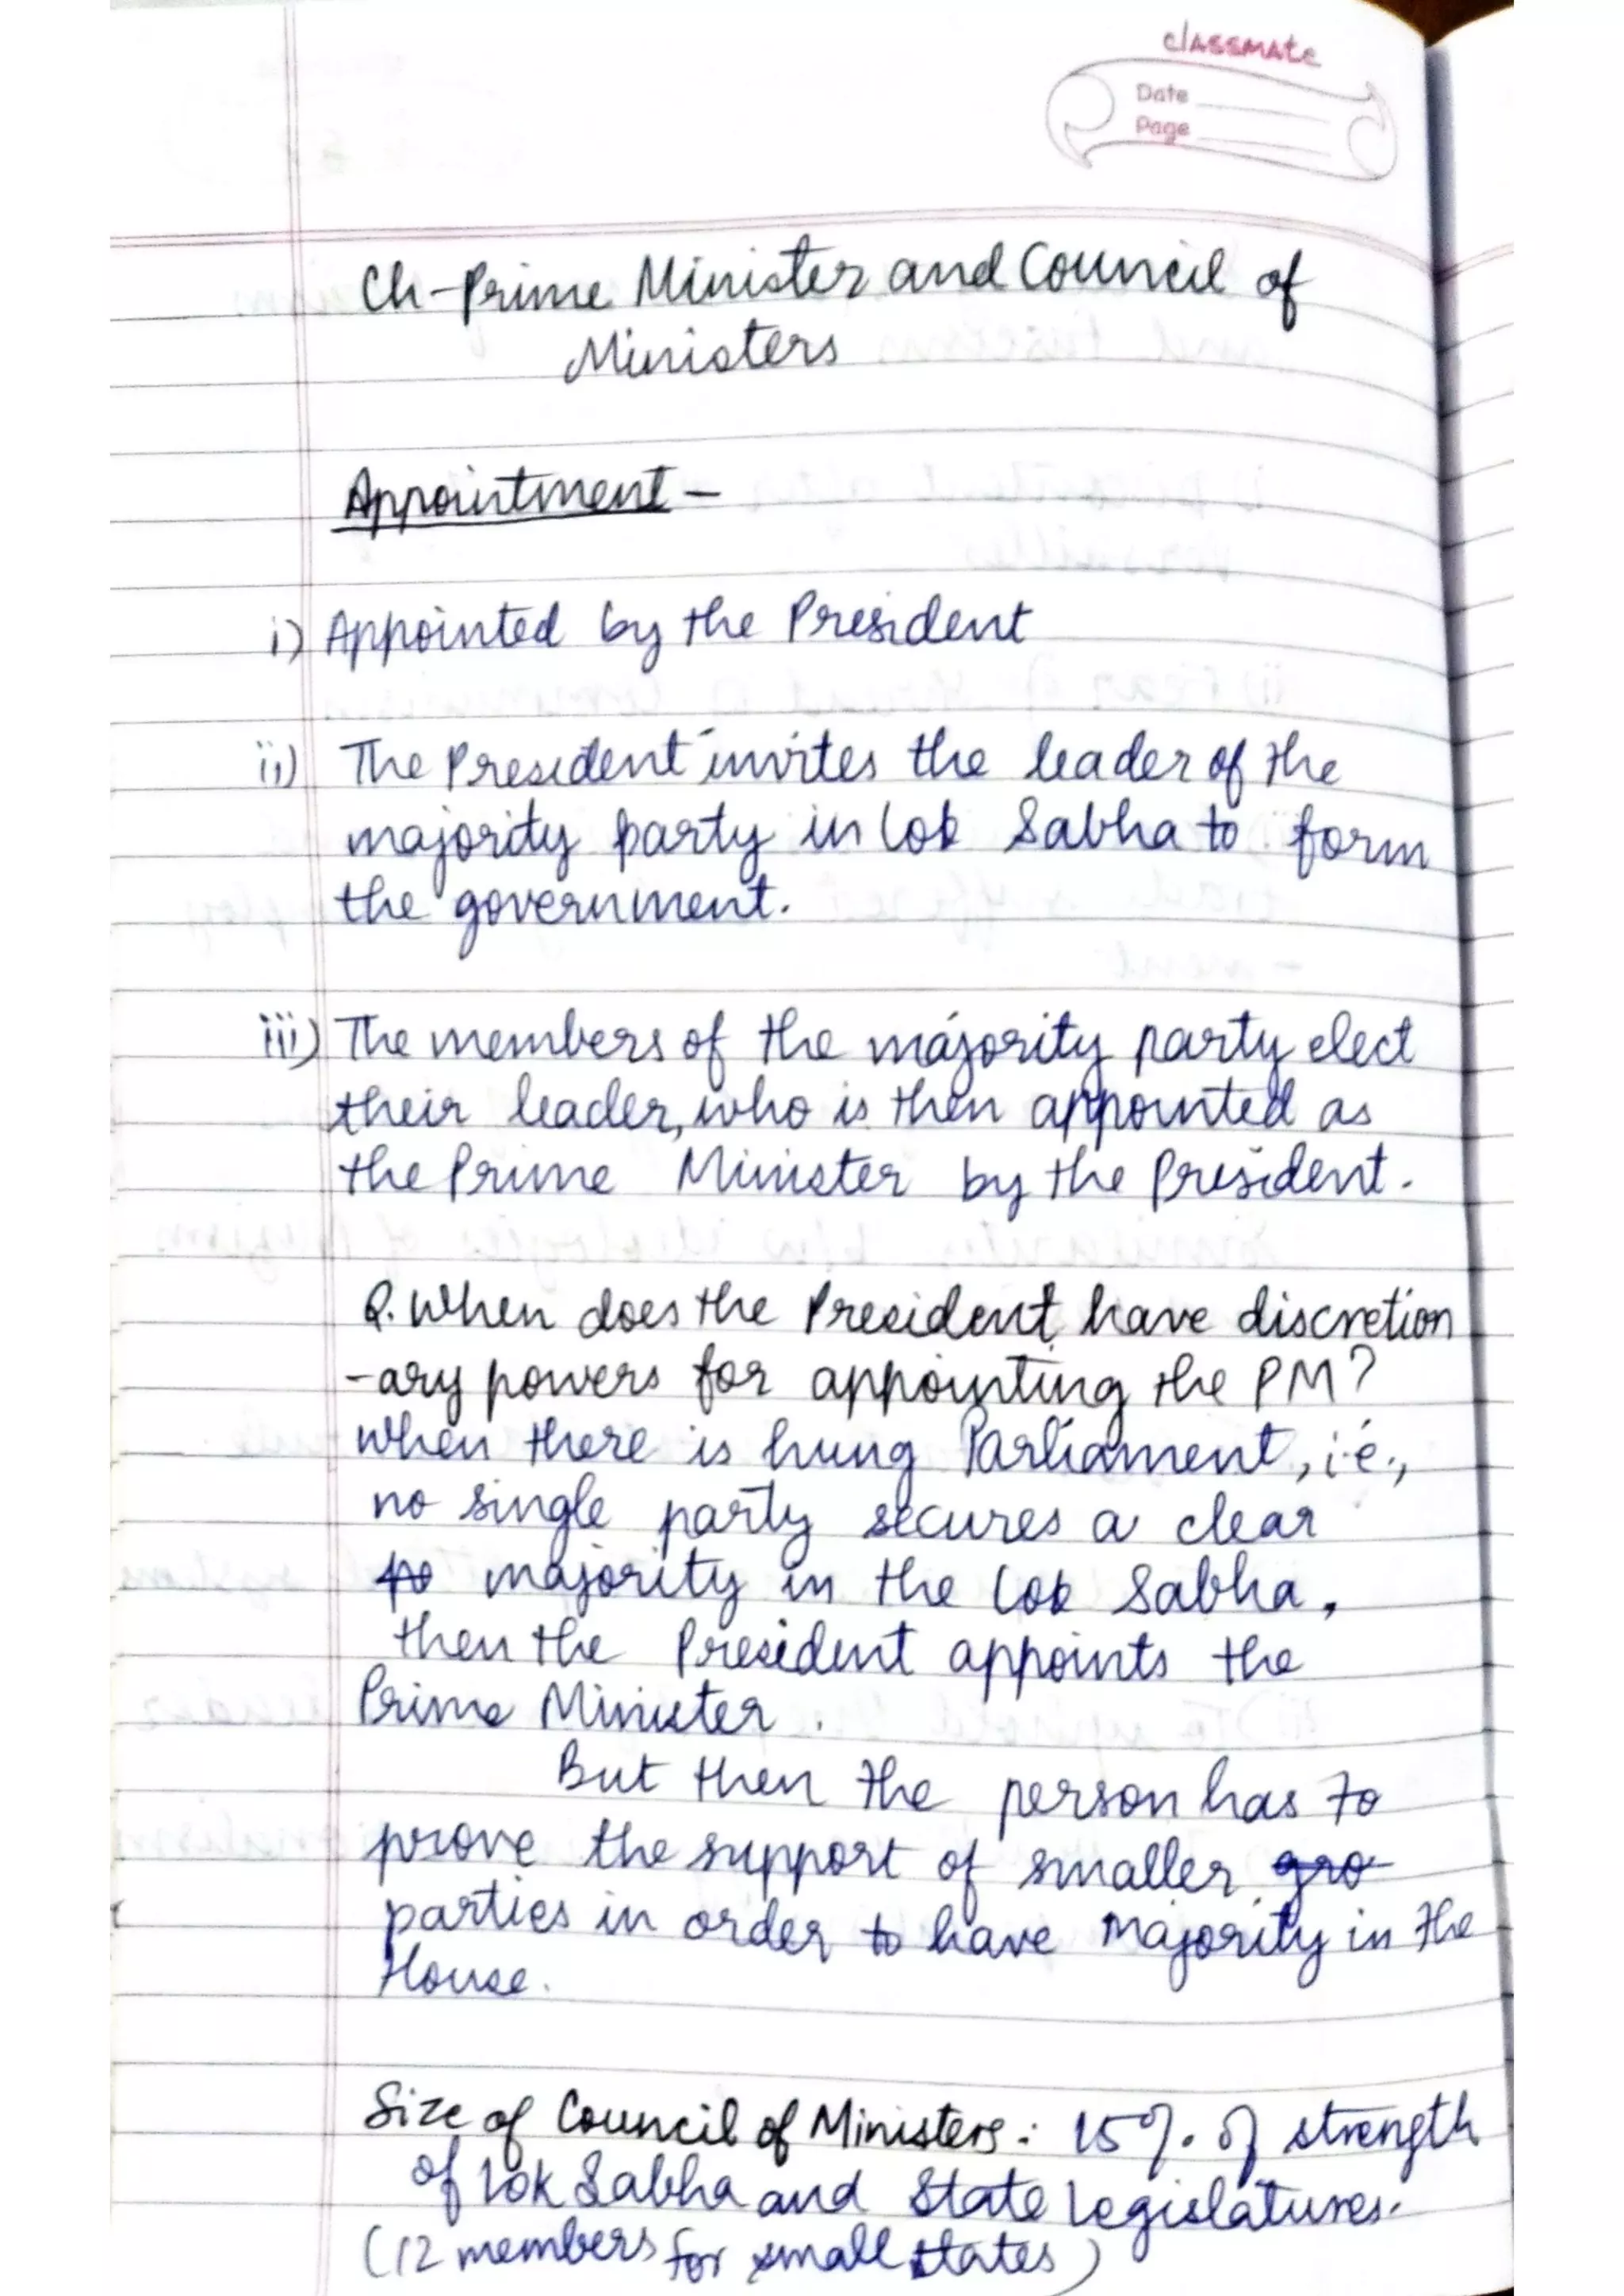 classmate
Date
Page
Ch-Prime Minister and Council of
Ministers
Appointment -
i) Appointed by the President
ii) The President invites the leader of the
majority party in Lok Sabha to form
the government.
iii) The members of the majority party elect
their leader, who is then appointed as
the Prime Minister by the President.
Q. When does the President have discretion
-ary powers for appointing the PM?
When there is hung Parliament, i.e.,
no single party secures a clear
majority in the Lok Sabha,
then the President appoints the
Prime Minister.
But then the person has to
prove the support of smaller gro
parties in order to have majority in the
House.
Size of Council of Ministers: 15% of strength
of Lok Sabha and State Legislatures.
(12 members for small states)